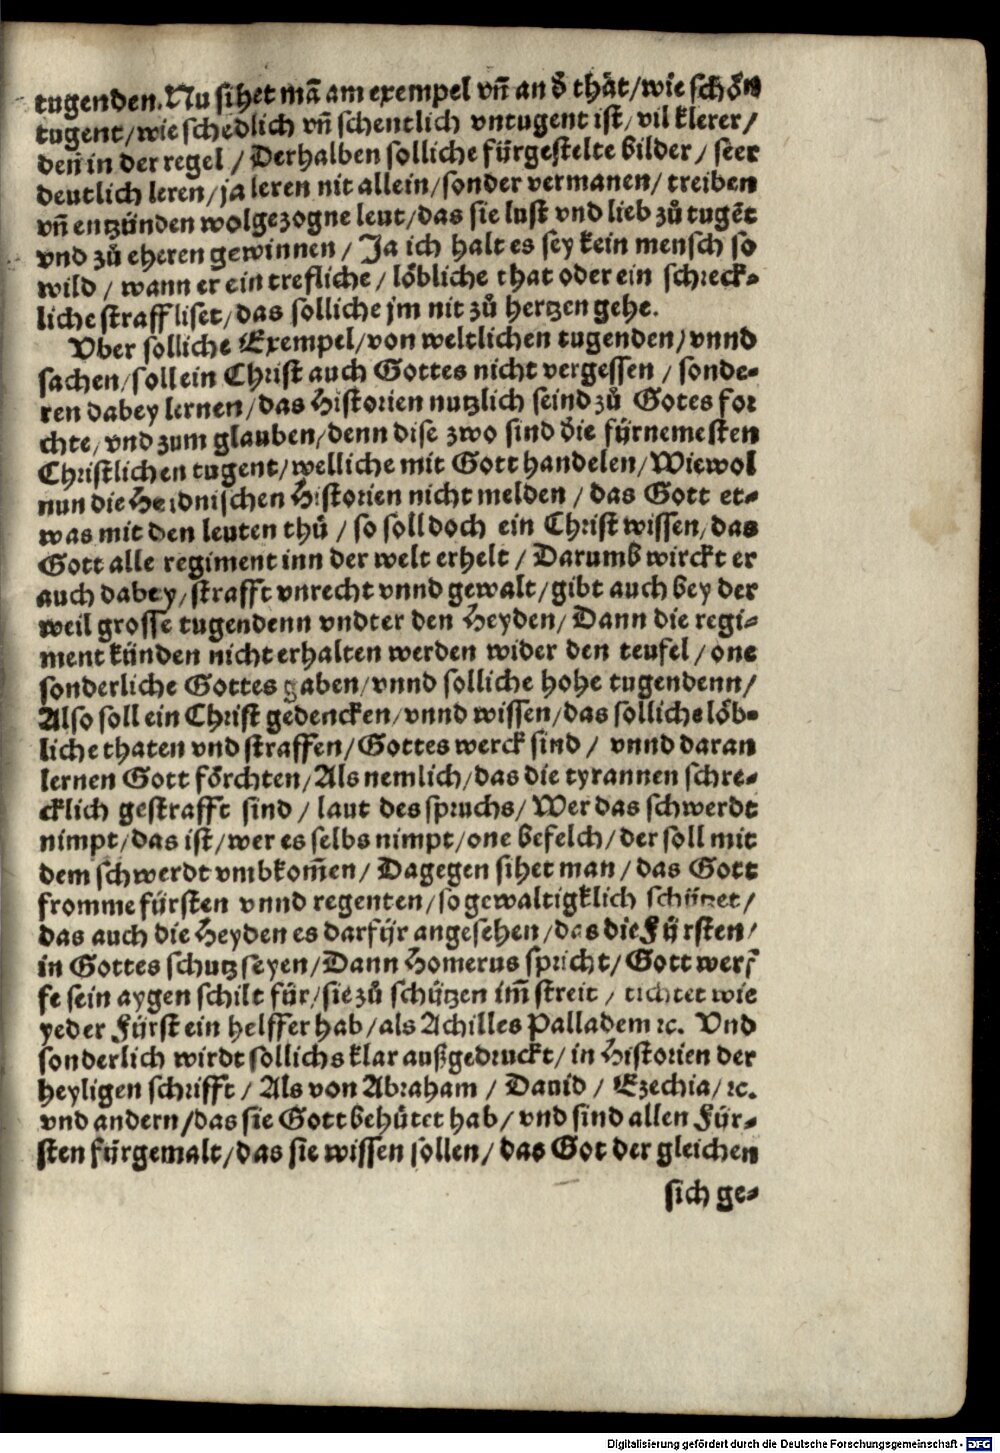 tugenden. Nu sihet mā am exempel vn̄ an d̕ thät / wie schön
tugent / wie schedlich vn̄ schentlich vntugent ist / vil klerer /
den̄ in der regel / Derhalben solliche fürgestelte bilder / seer
deutlich leren / ja leren nit allein / sonder vermanen / treiben
vn̄ entzünden wolgezogne leut / das sie lust vnd lieb zů tugēt
vnd zů eheren gewinnen / Ja ich halt es sey kein mensch so
wild / wann er ein trefliche / löbliche that oder ein schreck-
liche straff liset / das solliche jm nit zů hertzen gehe.
Vber solliche Exempel / von weltlichen tugenden / vnnd
sachen / soll ein Christ auch Gottes nicht vergessen / sonde-
ren dabey lernen / das Historien nutzlich seind zů Gotes for
chte / vnd zum glauben / denn dise zwo sind die fürnemesten
Christlichen tugent / welliche mit Gott handelen / Wiewol
nun die Heidnischen Historien nicht melden / das Gott et-
was mit den leuten thů / so soll doch ein Christ wissen / das
Gott alle regiment inn der welt erhelt / Darumb wirckt er
auch dabey / strafft vnrecht vnnd gewalt / gibt auch bey der
weil grosse tugendenn vndter den Heyden / Dann die regi-
ment künden nicht erhalten werden wider den teufel / one
sonderliche Gottes gaben / vnnd solliche hohe tugendenn /
Also soll ein Christ gedencken / vnnd wissen / das solliche löb-
liche thaten vnd straffen / Gottes werck sind / vnnd daran
lernen Gott förchten / Als nemlich / das die tyrannen schre-
cklich gestrafft sind / laut des spruchs / Wer das schwerdt
nimpt / das ist / wer es selbs nimpt / one befelch / der soll mit
dem schwerdt vmbkom̄en / Dagegen sihet man / das Gott
fromme fürsten vnnd regenten / so gewaltigklich schützet /
das auch die Heyden es darfür angesehen / das die Fürsten /
in Gottes schutz seyen / Dann Homerus spricht / Gott werf
fe sein aygen schilt für / sie zů schützen im̄ streit / tichtet wie
yeder Fürst ein helffer hab / als Achilles Palladem ⁊c. Vnd
sonderlich wirdt sollichs klar außgedruckt / in Historien der
heyligen schrifft / Als von Abraham / Dauid / Ezechia / ⁊c.
vnd andern / das sie Gott behütet hab / vnd sind allen Für-
sten fürgemalt / das sie wissen sollen / das Got der gleichen
sich ge-
Digitalisierung gefördert durch die Deutsche Forschungsgemeinschaft - DFG